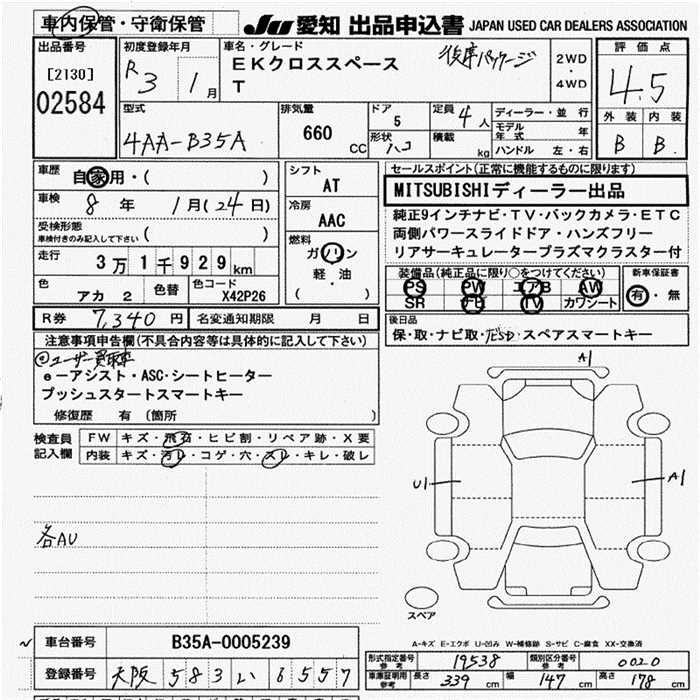 車内保管・守衛保管
JU 愛知 出品申込書 JAPAN USED CAR DEALERS ASSOCIATION
出品番号 初度登録年月 車名・グレード 評価点
[2130] R 3 1月 EKクロススペース 後席パッケージ 2WD・4WD 4.5
02584 T
外装 内装
B B
型式 排気量 ドア 5 定員 4人 ディーラー・並行
4AA-B35A 660 CC 形状 ハコ 積載 kg モデル年式 年
ハンドル 左・右
車歴 自家用・( ) シフト AT セールスポイント(正常に機能するものに限ります)
MITSUBISHIディーラー出品
車検 8年 1月(24日) 冷房 AAC 純正9インチナビ・TV・バックカメラ・ETC
受検形態 ( ) 両側パワースライドドア・ハンズフリー
車検付きのみ記入して下さい
走行 3万1千929km 燃料 ガソリン リアサーキュレータープラズマクラスター付
軽・油
( )
装備品(純正品に限り○をつけてください) 新車保証書
PS PW エアB AW 有・無
SR ナビ TV カワシート
色 アカ 2 色替 色コード X42P26
後日品
保・取・ナビ取・スペアスマートキー
R券 7,340円 名変通知期限 月 日
注意事項申告欄(不具合内容等は具体的に記入して下さい)
@ユーザー買取車
e-アシスト・ASC・シートヒーター
プッシュスタートスマートキー
修復歴 有 (箇所 )
検査員記入欄 FW キズ・飛石・ヒビ割・リペア跡・X要
内装 キズ・汚レ・コゲ・穴・スレ・キレ・破レ
A1
U1
A1
各AU
スペア
A-キズ E-エクボ U-凹み W-補修跡 S-サビ C-腐食 XX-交換済
車台番号 B35A-0005239
登録番号 大阪 583 い 6557
形式指定番号 参考 19538 類別区分番号 参考 0020
車庫証明用 参考 長さ 339cm 幅 147cm 高さ 178cm